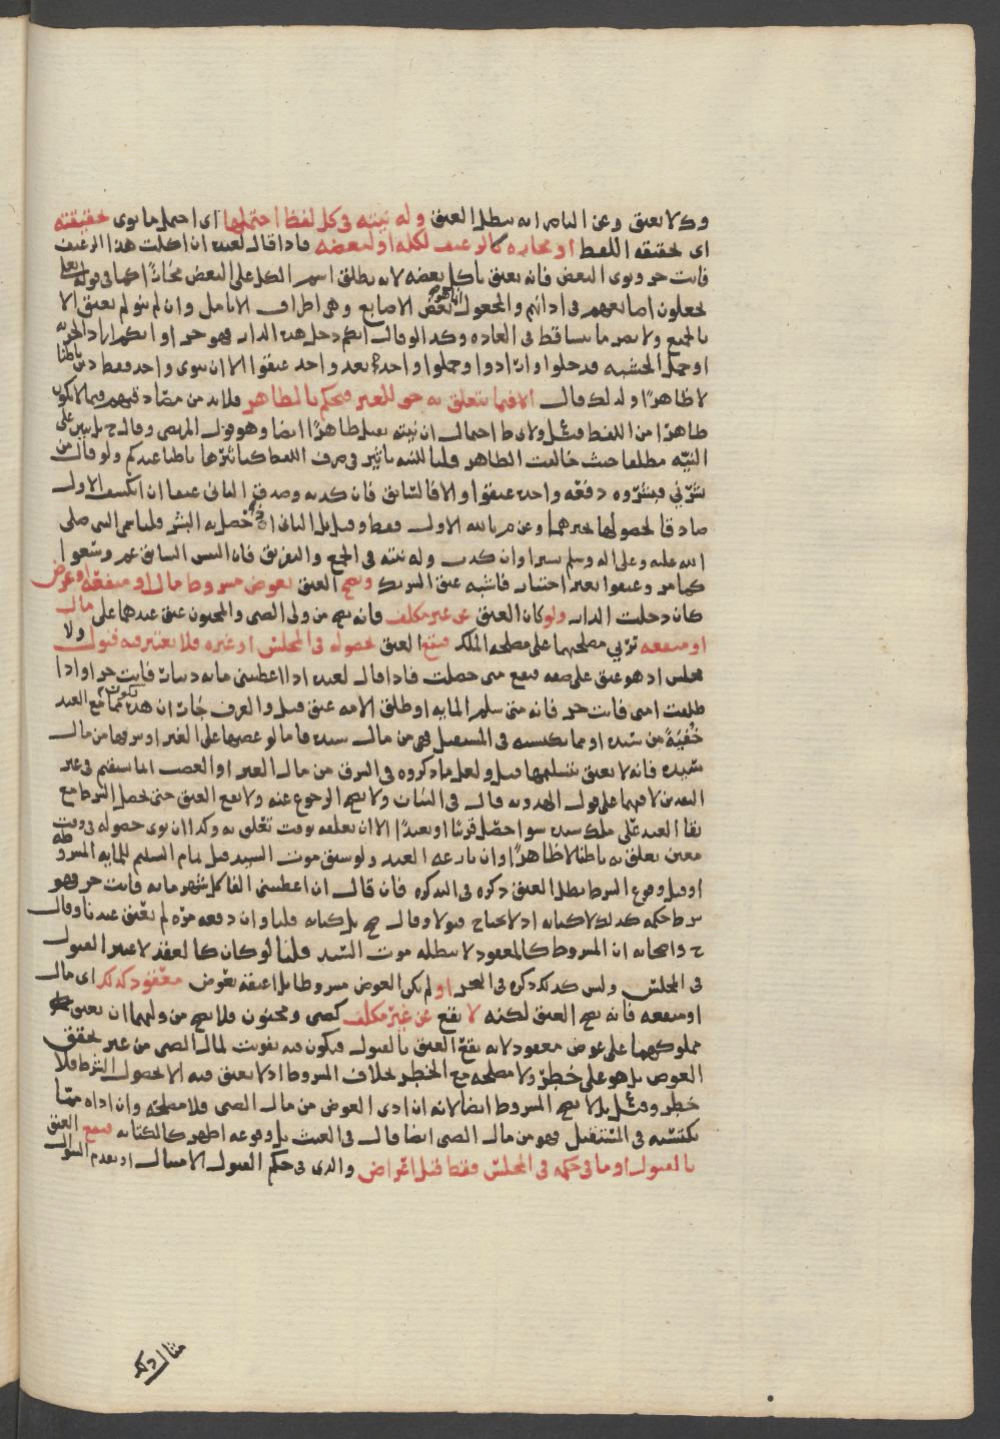 وك لا يعتق وعن الناصر انه يبطل العتق وله نيته في كل لفظ احتملها اى احتمل ما نوى بحقيقته
اى بحقيقه اللفظ او مجازه كالرغيف لكله او لبعضه فاذا قال لعبده ان اكلت هذا الرغيف
فانت حر ونوى البعض فانه يعتق باكل بعضه لانه يطلق اسم الكل على البعض مجازًا كما في قوله تعالى
يجعلون اصابعهم في اذانهم والمجعول انما هو بعض الاصابع وهي اطراف الانامل وان لم ينو لم يعتق الا
بالجميع ولا يضر ما تساقط في العاده وكذا لو قال ايكم دخل هذه الدار فهو حر او ايكم اراد الحريه
او حمل الخشبه فدخلوا وارادوا وحملوا واحدًا بعد واحد عتقوا الا ان ينوى واحد فقط دين باطنا
لا ظاهرًا ولذلك قال الا فيما يتعلق به حق للغير فيحكم بالظاهر فلا بد من مصادقتهم فيما لا يكون
ظاهرًا من اللفظ وقيل ولاى ط احتمال ان نيته تقبل ظاهرًا ايضا وهو قول المرتضى وقال ح بل يبين على
النيه مطلقا حيث خالفت الظاهر قلنا للنيه تاثير في صرف اللفظ كما تاثيرها باطنا عندكم ولو قال من
بشرني فبشروه دفعه واحده عتقوا والا فالسابق فان كذبه وصدق الثاني عتقا ان انكشف الاول
صادقا لحصولها بخبرهما وعن م بالله الاول فقط وقيل بل الثاني اذ حصل به البشر قلنا سمى النبي صلى
الله عليه وعلى اله وسلم بشيرا وان كذب وله نيته في الجمع والتفريق فان التبس السابق عمهم وسعوا
كما مر وعتقوا بغير اختيار فاشبه عتق الشريك ويصح العتق بعوض مشروط مال او منفعه او غرض
كان دخلت الدار ولو كان العتق عن غير مكلف فانه يصح من ولي الصبي والمجنون عتق عبدهما على مال
او منفعه تربي مصلحتهما على مصلحه الملك فيقع العتق بحصوله في المجلس او غيره فلا يعتبر فيه قبول ولا
مجلس اذ هو عتق على صفه فيقع متى حصلت فاذا قال لعبده اذا اعطيتني مائه دينار فانت حر او اذا
طلقت امتى فانت حر فانه متى سلم المايه او طلق الامه عتق قيل والعرف جار ان هذه تكون مما مع العبد
خُفيَةً من سيده او مما يكتسبه في المستقبل فهى من مال سيده فاما لو غصبها على الغير او سرقها من مال
سيده فانه لا يعتق بتسليمها قيل ولعل ما ذكروه في السرق من مال الغير او الغصب انما يستقيم في غير
النقدين لا فيهما على قول الهدويه قال في البيان ولا يصح الرجوع عنه ولا يقع العتق حتى يحصل الشرط مع
بقا العبد على ملك سيده سوا حصل قريبًا او بعيدًا الا ان يعلقه بوقت تعلق به وكذا ان نوى حصوله في وقت
معين تعلق به باطنا لا ظاهرًا وان باعه العبد ولو سبق موت السيد قبل تمام التسليم للمايه المشروطه
او قبل وقوع الشرط بطل العتق ذكره في التذكره فان قال ان اعطيتني الفا كل شهر مائه فانت حر فهو
شرط حكمه كذلك لا كتابه اذ لا يحتاج قبولا وقال ح بل كتابه قلنا وان دفعه مره لم يعتق عندنا وقال
ح واصحابه ان المشروط كالمعقود لا يبطله موت السيد قلنا لو كان كالعقد لاعتبر القبول
في المجلس وليس كذلك ذكره في البحر او لم يكن العوض مشروطا بل اعتقه بعوض معقود كذلك اى مال
او منفعه فانه يصح العتق لكنه لا يقع عن غير مكلف كصبي ومجنون فلا يصح من وليهما ان يعتق
مملوكهما على عوض معقود لانه يقع العتق بالقبول فيكون فيه تفويت لمال الصبي من غير تحقق
العوض بل هو على خطر ولا مصلحه مع الخطر بخلاف المشروط اذ لا يعتق فيه الا بحصول الشرط فلا
خطر وقيل بل لا يصح المشروط ايضا لانه ان ادى العوض من مال الصبي فلا مصلحه وان اداه مما
يكتسبه في المستقبل فهو من مال الصبي ايضا قال في الغيث بل وقوعه اظهر كالكتابه فيقع العتق
بالقبول او ما في حكمه في المجلس فقط قبل اعراض والذى في حكم القبول الامتثال او تقدم السوال
مثال ذلك